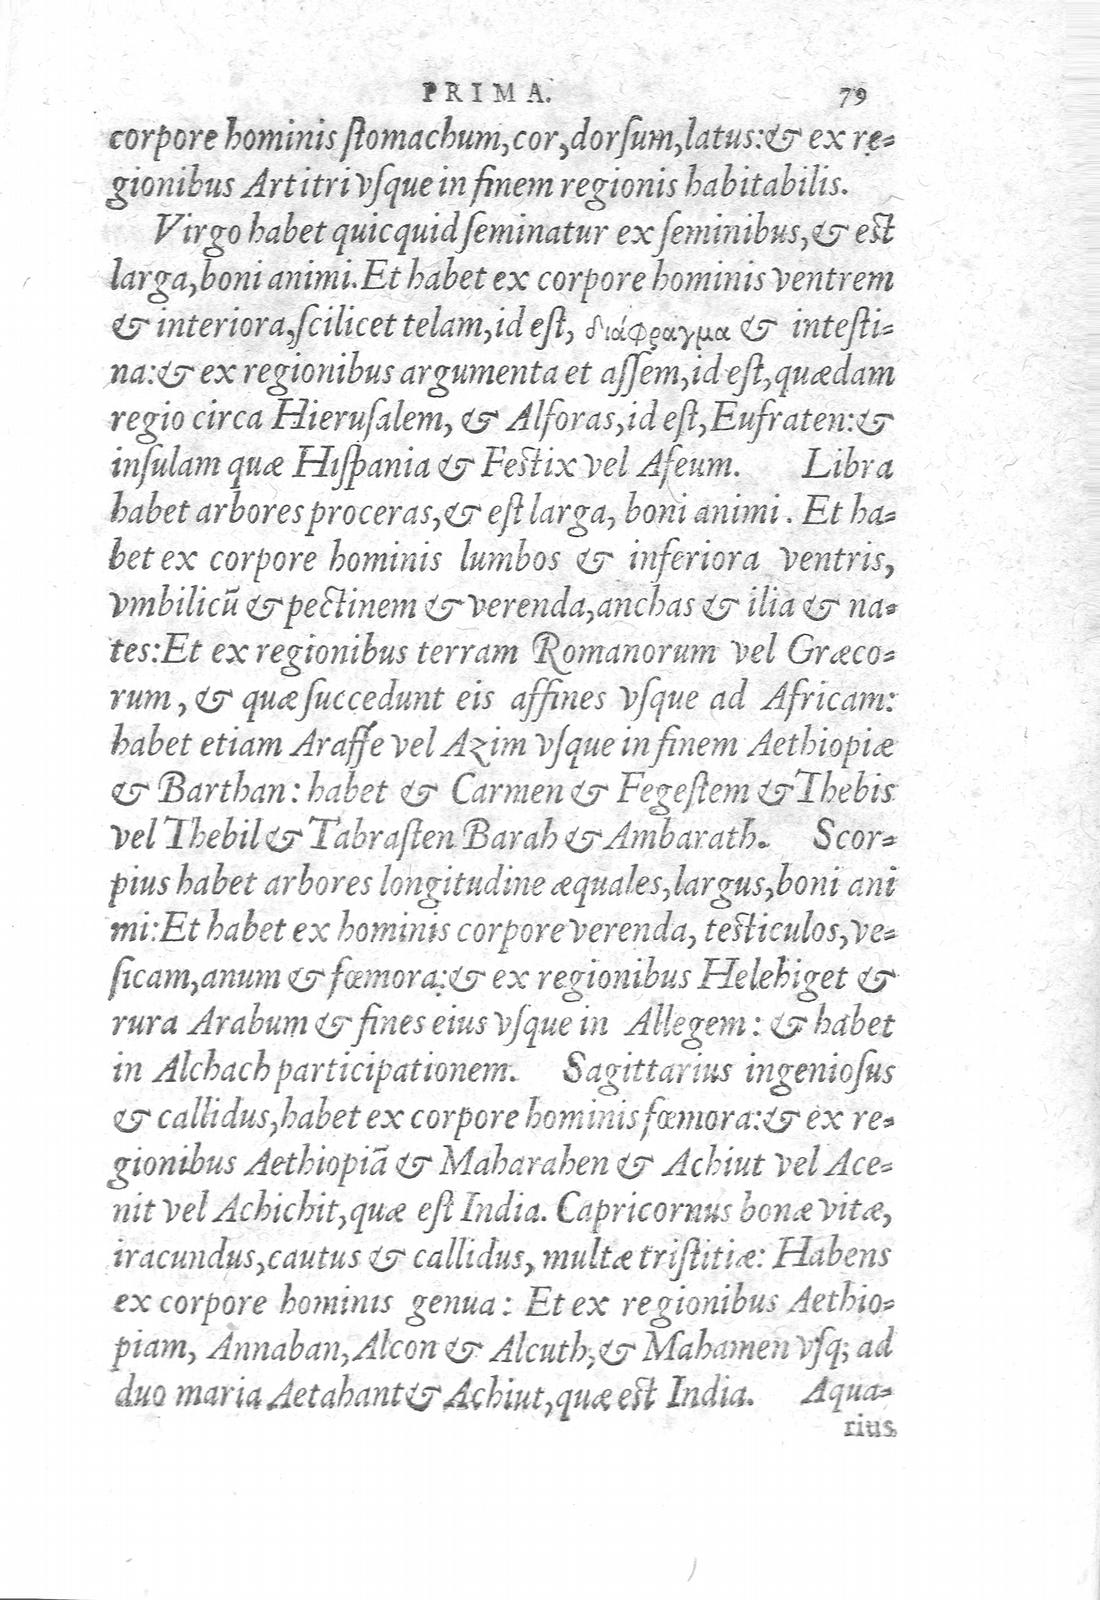 PRIMA. 79
corpore hominis ſtomachum, cor, dorſum, latus: & ex re-
gionibus Artitri vſque in finem regionis habitabilis.
Virgo habet quicquid ſeminatur ex ſeminibus, & est
larga, boni animi. Et habet ex corpore hominis ventrem
& interiora, ſcilicet telam, id eſt, διάφραγμα & inteſti-
na: & ex regionibus argumenta et aſſem, id eſt, quædam
regio circa Hieruſalem, & Alforas, id eſt, Eufraten: &
inſulam quæ Hiſpania & Fectix vel Aſeum. Libra
habet arbores proceras, & eſt larga, boni animi. Et ha-
bet ex corpore hominis lumbos & inferiora ventris,
vmbilicū & pectinem & verenda, anchas & ilia & na-
tes: Et ex regionibus terram Romanorum vel Græco-
rum, & quæ ſuccedunt eis affines vſque ad Africam:
habet etiam Araffe vel Azim vſque in finem Aethiopiæ
& Barthan: habet & Carmen & Fegeſtem & Thebis
vel Thebil & Tabraſten Barah & Ambarath. Scor-
pius habet arbores longitudine æquales, largus, boni ani
mi: Et habet ex hominis corpore verenda, testiculos, ve-
ſicam, anum & fœmora: & ex regionibus Helehiget &
rura Arabum & fines eius vſque in Allegem: & habet
in Alchach participationem. Sagittarius ingenioſus
& callidus, habet ex corpore hominis fœmora: & ex re-
gionibus Aethiopiā & Maharahen & Achiut vel Ace-
nit vel Achichit, quæ eſt India. Capricornus bonæ vitæ,
iracundus, cautus & callidus, multæ triſtitiæ: Habens
ex corpore hominis genua: Et ex regionibus Aethio-
piam, Annaban, Alcon & Alcuth, & Mahamen vſq; ad
duo maria Aetahant & Achiut, quæ est India. Aqua-
rius.